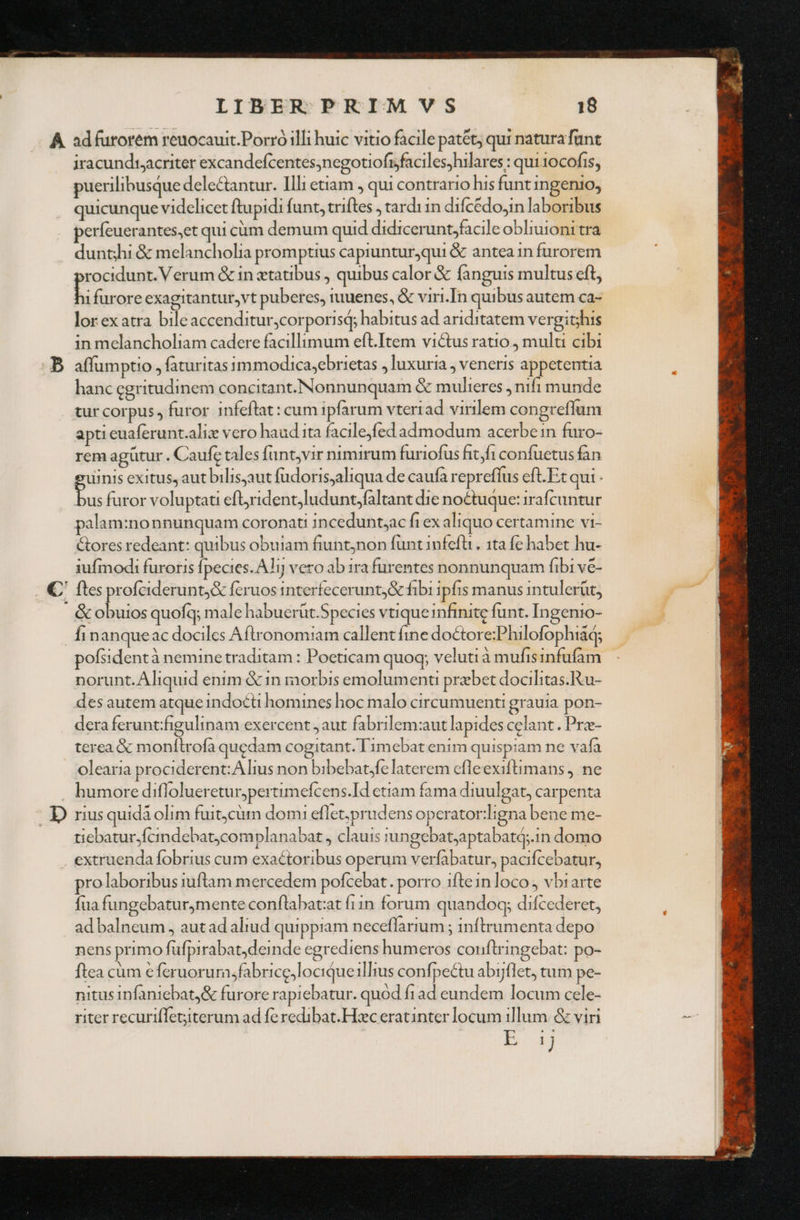 LIBER PRIMVS 18
A ad furorem reuocauit.Porrò illi huic vitio facile patẽt, qui natura sunt
iracundi,acriter excandeſcentes,negotioſi,faciles,hilares: qui iocoſis,
puerilibusque delectantur. Illi etiam , qui contrario his ſunt ingenio,
quicunque videlicet ſtupidi ſunt, triſtes , tardi in diſcẽdo,in laboribus
perſeuerantes,et qui cùm demum quid didicerunt,facile obliuioni tra
dunt;hi & melancholia promptius capiuntur,qui & antea in furorem
procidunt. Verum & in ætatibus , quibus calor & ſanguis multus eſt,
hi furore exagitantur,vt puberes, iuuenes, & viri.In quibus autem ca-
lor ex atra bile accenditur,corporisq́; habitus ad ariditatem vergit;his
in melancholiam cadere facillimum eſt.Item victus ratio , multi cibi
B aſſumptio , ſaturitas immodica,ebrietas , luxuria , veneris appetentia
hanc ęgritudinem concitant.Nonnunquam & mulieres , niſi munde
tur corpus , furor infeſtat : cum ipſarum vteri ad virilem congreſſum
apti euaſerunt.aliæ vero haud ita facile,ſed admodum acerbe in furo-
rem agũtur . Cauſę tales ſunt,vir nimirum furioſus fit,ſi conſuetus ſan
guinis exitus, aut bilis,aut ſudoris,aliqua de cauſa repreſſus eſt.Et qui-
bus furor voluptati eſt,rident,ludunt,ſaltant die noctuque: iraſcuntur
palam:nonnunquam coronati incedunt,ac ſi ex aliquo certamine vi-
ctores redeant: quibus obuiam fiunt,non ſunt infeſti . ita ſe habet hu-
iuſmodi furoris ſpecies. Alij vero ab ira furentes nonnunquam ſibi vẽ-
C ſtes proſciderunt,& ſeruos interfecerunt,& ſibi ipſis manus intulerũt,
& obuios quoſq; male habuerũt.Species vtique infinitę ſunt. Ingenio-
ſi nanque ac dociles Aſtronomiam callent ſine doctore:Philoſophiãq́;
poſsident à nemine traditam : Poeticam quoq; veluti à muſis infuſam
norunt. Aliquid enim & in morbis emolumenti præbet docilitas.Ru-
des autem atque indocti homines hoc malo circumuenti grauia pon-
dera ferunt:figulinam exercent , aut fabrilem:aut lapides cęlant . Præ-
terea & monſtroſa quędam cogitant. Timebat enim quispiam ne vaſa
olearia prociderent: Alius non bibebat,ſe laterem eſſe exiſtimans , ne
humore diſſolueretur,pertimeſcens.Id etiam fama diuulgat, carpenta
D rius quidã olim fuit,cùm domi eſſet,prudens operator:ligna bene me-
tiebatur,ſcindebat,complanabat , clauis iungebat,aptabatq́;.in domo
extruenda ſobrius cum exactoribus operum verſabatur, paciſcebatur,
pro laboribus iuſtam mercedem poſcebat. porro iſte in loco , vbi arte
ſua fungebatur,mente conſtabat:at ſi in forum quandoq; diſcederet,
ad balneum , aut ad aliud quippiam neceſſarium ; inſtrumenta depo
nens primo ſuſpirabat,deinde egrediens humeros conſtringebat: po-
ſtea cùm è ſeruorum,fabricę,lociq́ue illius conſpectu abijſſet, tum pe-
nitus inſaniebat,& furore rapiebatur. quòd ſi ad eundem locum cele-
riter recuriſſet;iterum ad ſe redibat.Hæc erat inter locum illum & viri
E ij